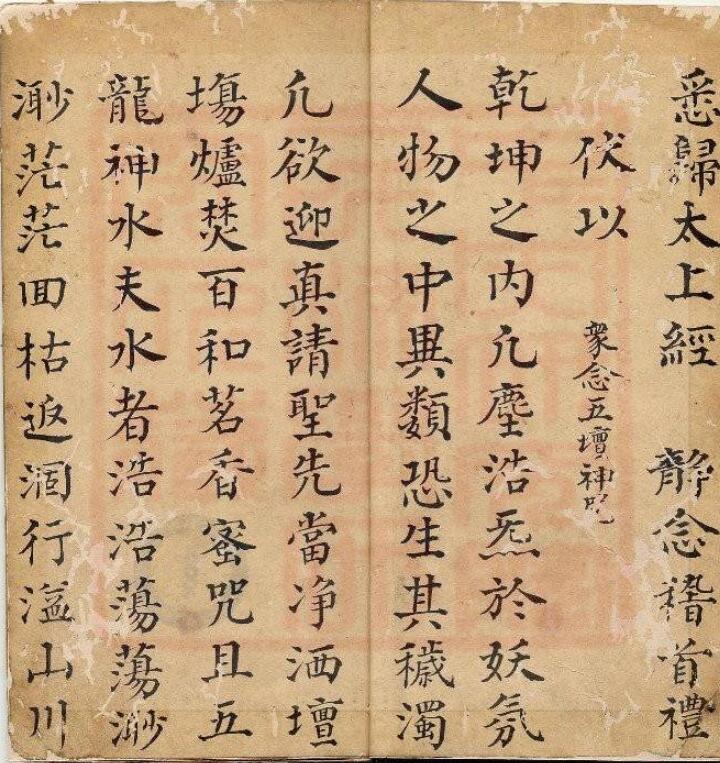 悉歸太上經 靜念稽首禮
伏以
眾念五壇神咒
乾坤之内凢塵浩炁於妖氛
人物之中異類恐生其穢濁
凢欲迎真請聖先當净洒壇
塲爐焚百和茗香蜜咒且五
龍神水夫水者浩浩蕩蕩渺
渺茫茫回枯返涸行溢山川